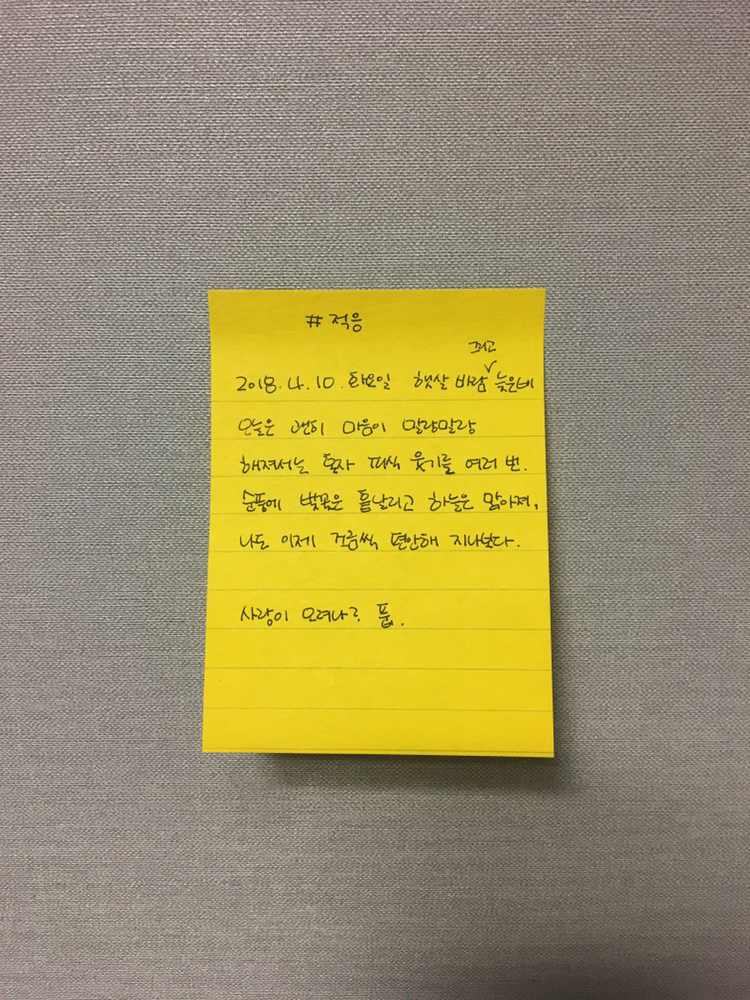 #적응
그리고
2018.4.10.화요일 햇살 바람 ∨ 늦은비
오늘은 괜히 마음이 말랑말랑
해져서는 혼자 피식 웃기를 여러 번.
순풍에 벚꽃은 흩날리고 하늘은 맑아져,
나도 이제 조금씩 편안해 지나보다.
사랑이 오려나? 풉.